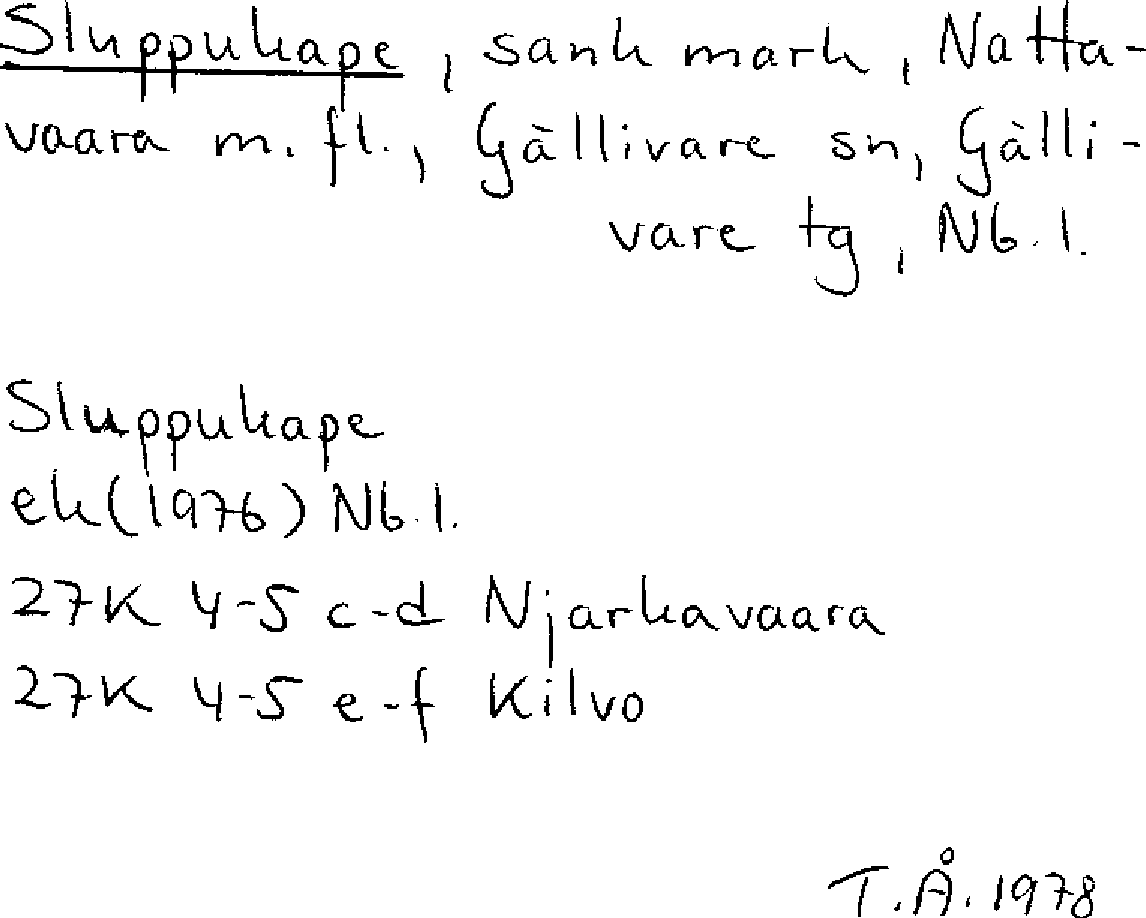 Sluppukape, sank mark, Natta-
vaara m. fl., Gällivare sn, Gälli-
vare tg, Nb. l.
Sluppukape
ek (1976) Nb. l.
27K 4-5 c-d Njarkavaara
27K 4-5 e-f Kilvo
T.Å. 1978